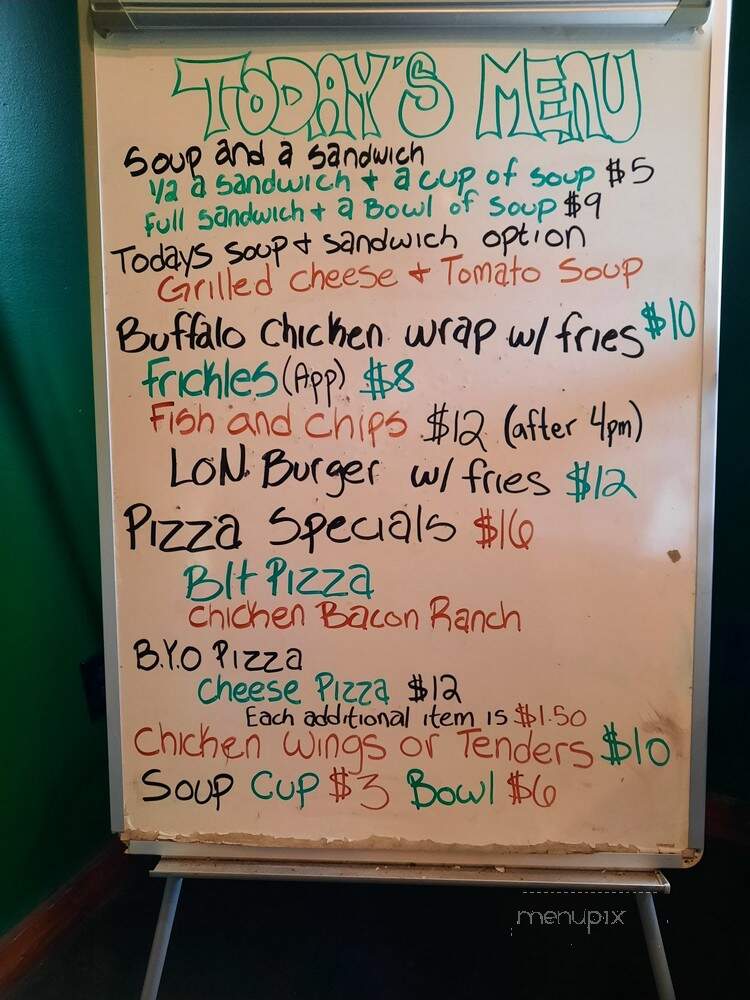 TODAY'S MENU
Soup and a sandwich
1/2 a sandwich + a cup of soup $5
Full sandwich + a Bowl of soup $9
Todays soup + sandwich option
Grilled cheese + Tomato Soup
Buffalo chicken wrap w/ fries $10
Frickles (App) $8
Fish and chips $12 (after 4pm)
LON. Burger w/ fries $12
Pizza Specials $16
Blt Pizza
Chicken Bacon Ranch
B.Y.O Pizza
Cheese Pizza $12
Each additional item is $1.50
Chicken wings or Tenders $10
Soup Cup $3 Bowl $6
menupix